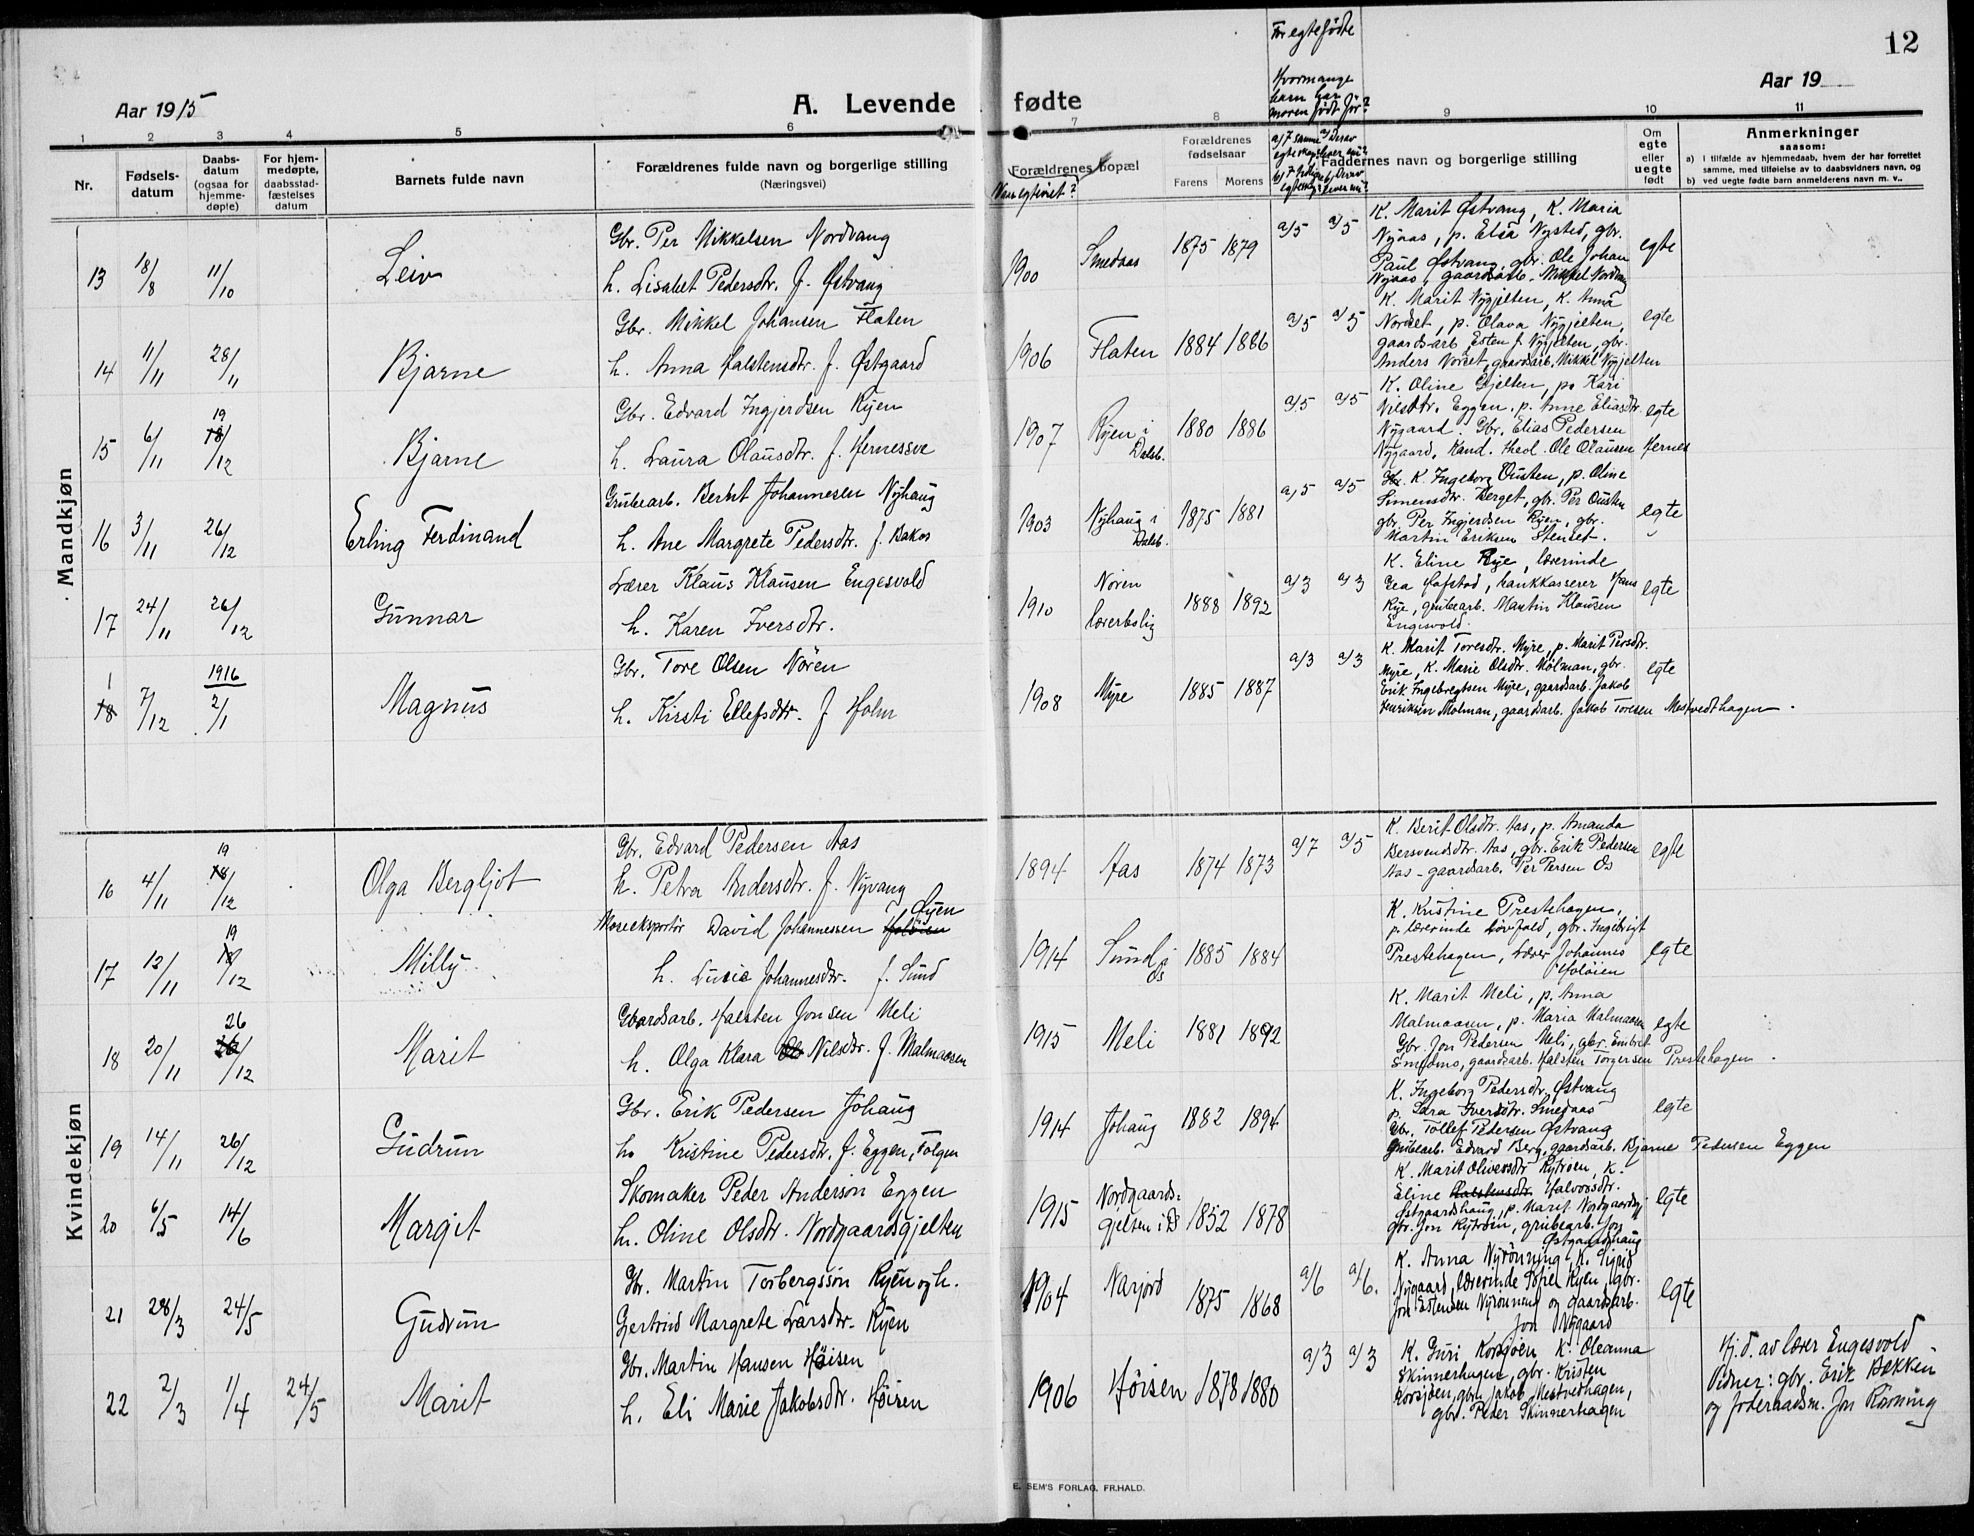 12
Aar 1915
A. Levende fødte
Aar 19
For egtefødte
Hvormange
barn har
moren født før?
1 2 3 4 5 6 7 8 9 10 11
Nr.
Fødsels-
datum
Daabs-
datum
(ogsaa for
hjemme-
døpte)
For hjem-
medøpte,
daabsstad-
fæstelses
datum
Barnets fulde navn
Forældrenes fulde navn og borgerlige stilling
(Næringsvei)
Forældrenes bopæl
Naar egteviet?
Forældrenes
fødselsaar
Farens Morens
Faddernes navn og borgerlige stilling
Om
egte
eller
uegte
født
Anmerkninger
saasom:
a) I tilfælde av hjemmedaab, hvem der har forrettet
samme, med tilføielse av to daabsvidners navn, og
b) ved uegte fødte barn anmelderens navn m. v..
Mandkjøn
13 18/8 11/10 Leiv
Gbr. Per Mikkelsen Nordvang
h. Lisabet Pedersdtr. f. Østvang
1900 Smedaas 1875 1879 a/5 a/5
K. Marit Østvang, K. Maria
Nyaas, p. Elsa Nysted, gbr.
Paul Østvang, gbr. Ole Johan
Nyaas, gaardsarb. Mikkel Nordvang
egte
14 11/11 28/11 Bjarne
Gbr. Mikkel Johansen Flaten
h. Anna Halstensdtr. f. Østgaard
1906 Flaten 1884 1886 a/5 a/5
K. Marit Nygjelten, K. Anna
Norset, p. Olava Nygjelten,
gaardsarb. Esten J. Nygjelten, gbr.
Anders Norset, gaardsarb. Mikkel Nygjelten
egte
15 6/11 19 18/12 Bjarne
Gbr. Edvard Ingjerdsen Ryen
h. Laura Olausdtr. f. Hernesse
1907 Ryen i
Dalsb. 1880 1886 a/5 a/5
K. Oline Gjelten, p. Kari
Nilsdtr. Eggen, p. Anne Eliasdtr.
Nygaard. Gbr. Elias Pedersen
Nygaard, Kand. theol. Ole Olausen Hernes
egte
16 3/11 26/12 Erling Ferdinand
Grubearb. Bernt Johannesen Nyhaug
h. Ane Margrete Pedersdtr. f. Bakos
1903 Nyhaug i
Dalsb. 1875 1881 a/5 a/5
K. Ingeborg Ousten, p. Oline
Simensdtr. Berget, gbr. Per Ousten
gbr. Per Ingjerdsen Ryen, gbr.
Martin Eriksen Stenset.
egte
17 24/11 26/12 Gunnar
Lærer Klaus Klausen Engesvold
h. Karen Iversdtr.
1910 Noren
lærerbolig 1888 1892 a/3 a/3
K. Eline Rye, lærerinde
Gea Hofstad, bankkasserer Hans
Rye, grubearb. Martin Klausen
Engesvold.
egte
1 18 7/12 1916 2/1 Magnus
Gbr. Tore Olsen Nören
h. Kirsti Ellefsdtr. f. Holm
1908 Myre 1885 1887 a/3 a/3
K. Marit Toresdtr. Myre, p. Marit Persdtr.
Myre, K. Marie Olsdtr. Molman, gbr.
Erik Ingebregtsen Myre, gaardsarb. Jakob
Henriksen Molman, gaardsarb. Jakob Toresen Mestvedthagen.
egte
Kvindekjøn
16 4/11 19 18/12 Olga Bergljot
Gbr. Edvard Pedersen Aas
h. Petra Andersdtr. f. Nyvang
1894 Aas 1874 1873 a/7 a/5
K. Berit Olsdtr. Aas, p. Amanda
Bersvendsdtr. Aas, gbr. Erik Pedersen
Aas - gaardsarb. Per Persen Os
egte
17 13/11 19 18/12 Milly
Moseeksportør David Johannessen Øyen
h. Lucie Johannesdtr. f. Sund
1914 Sund i
Os 1885 1884
K. Kristine Prestehagen,
p. lærerinde Lovfald, gbr. Ingebrigt
Prestehagen, Lærer Johannes
Holøien
egte
18 20/11 26 26/12 Marit
Gaardsarb. Halsten Jonsen Meli
h. Olga Klara Nilsdtr. f. Malmaasen
1915 Meli 1881 1892
K. Marit Meli, p. Anna
Malmaasen, p. Maria Malmaasen
Gbr. Jon Pedersen Meli, gbr. Embret
Smedmo, gaardsarb. Halsten Torgersen Prestehagen.
egte
19 14/11 26/12 Gudrun
Gbr. Erik Pedersen Johaug
h. Kristine Pedersdtr. f. Eggen, Tolgen
1914 Johaug 1882 1894
K. Ingeborg Pedersdtr. Østvang
p. Sara Iversdtr. Smedaas
Gbr. Tollef Pedersen Østvang
Grubearb. Edvard Berg, gaardsarb. Bjarne Pedersen Eggen
egte
20 6/5 14/6 Margit
Skomaker Peder Anderson Eggen
h. Oline Olsdtr. Nordgaardsgjelten
1915 Nordgaards=
gjelten i Os 1852 1878
K. Marit Oliversdtr Rytroen, K.
Eline Halvorsdtr.
Østgaardshaug, p. Marit Nordgaardsgj
gbr. Jon Rytroen, grubearb. Jon
Østgaardshaug
egte
21 28/3 24/5 Gudrun
Gbr. Martin Torbergssøn Ryen og h.
Gertrud Margrete Larsdtr. Ryen
1904 Narjord 1875 1868 a/6 a/6.
K. Anna Nyrönning, K. Sigrid
Nygaard, lærerinde Sofie Ryen, gbr.
Jon Estensen Nyrønning og gaardsarb.
Jon Nygaard
egte
22 2/3 1/4 24/5 Marit
Gbr. Martin Hansen Høisen
h. Eli Marie Jakobsdtr. Høisen
1906 Høisen 1878 1880 a/3 a/3
K. Guri Korsjøen K. Oleanna
Skinnerhagen, gbr. Kristen
Korsjøen, gbr. Jakob Mestvedhagen,
gbr. Peder Skinnerhagen
Hj. d. av lærer Engesvold
Vidner: gbr. Erik Bekken
og foderaadsm. Jon Rönning
E. SEM'S FORLAG, FR.HALD.